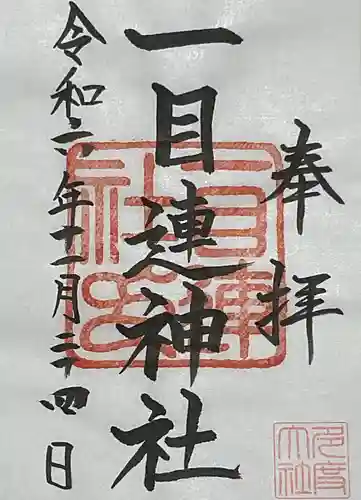 奉拝
一目連神社
令和二年十一月二十四日
多度大社